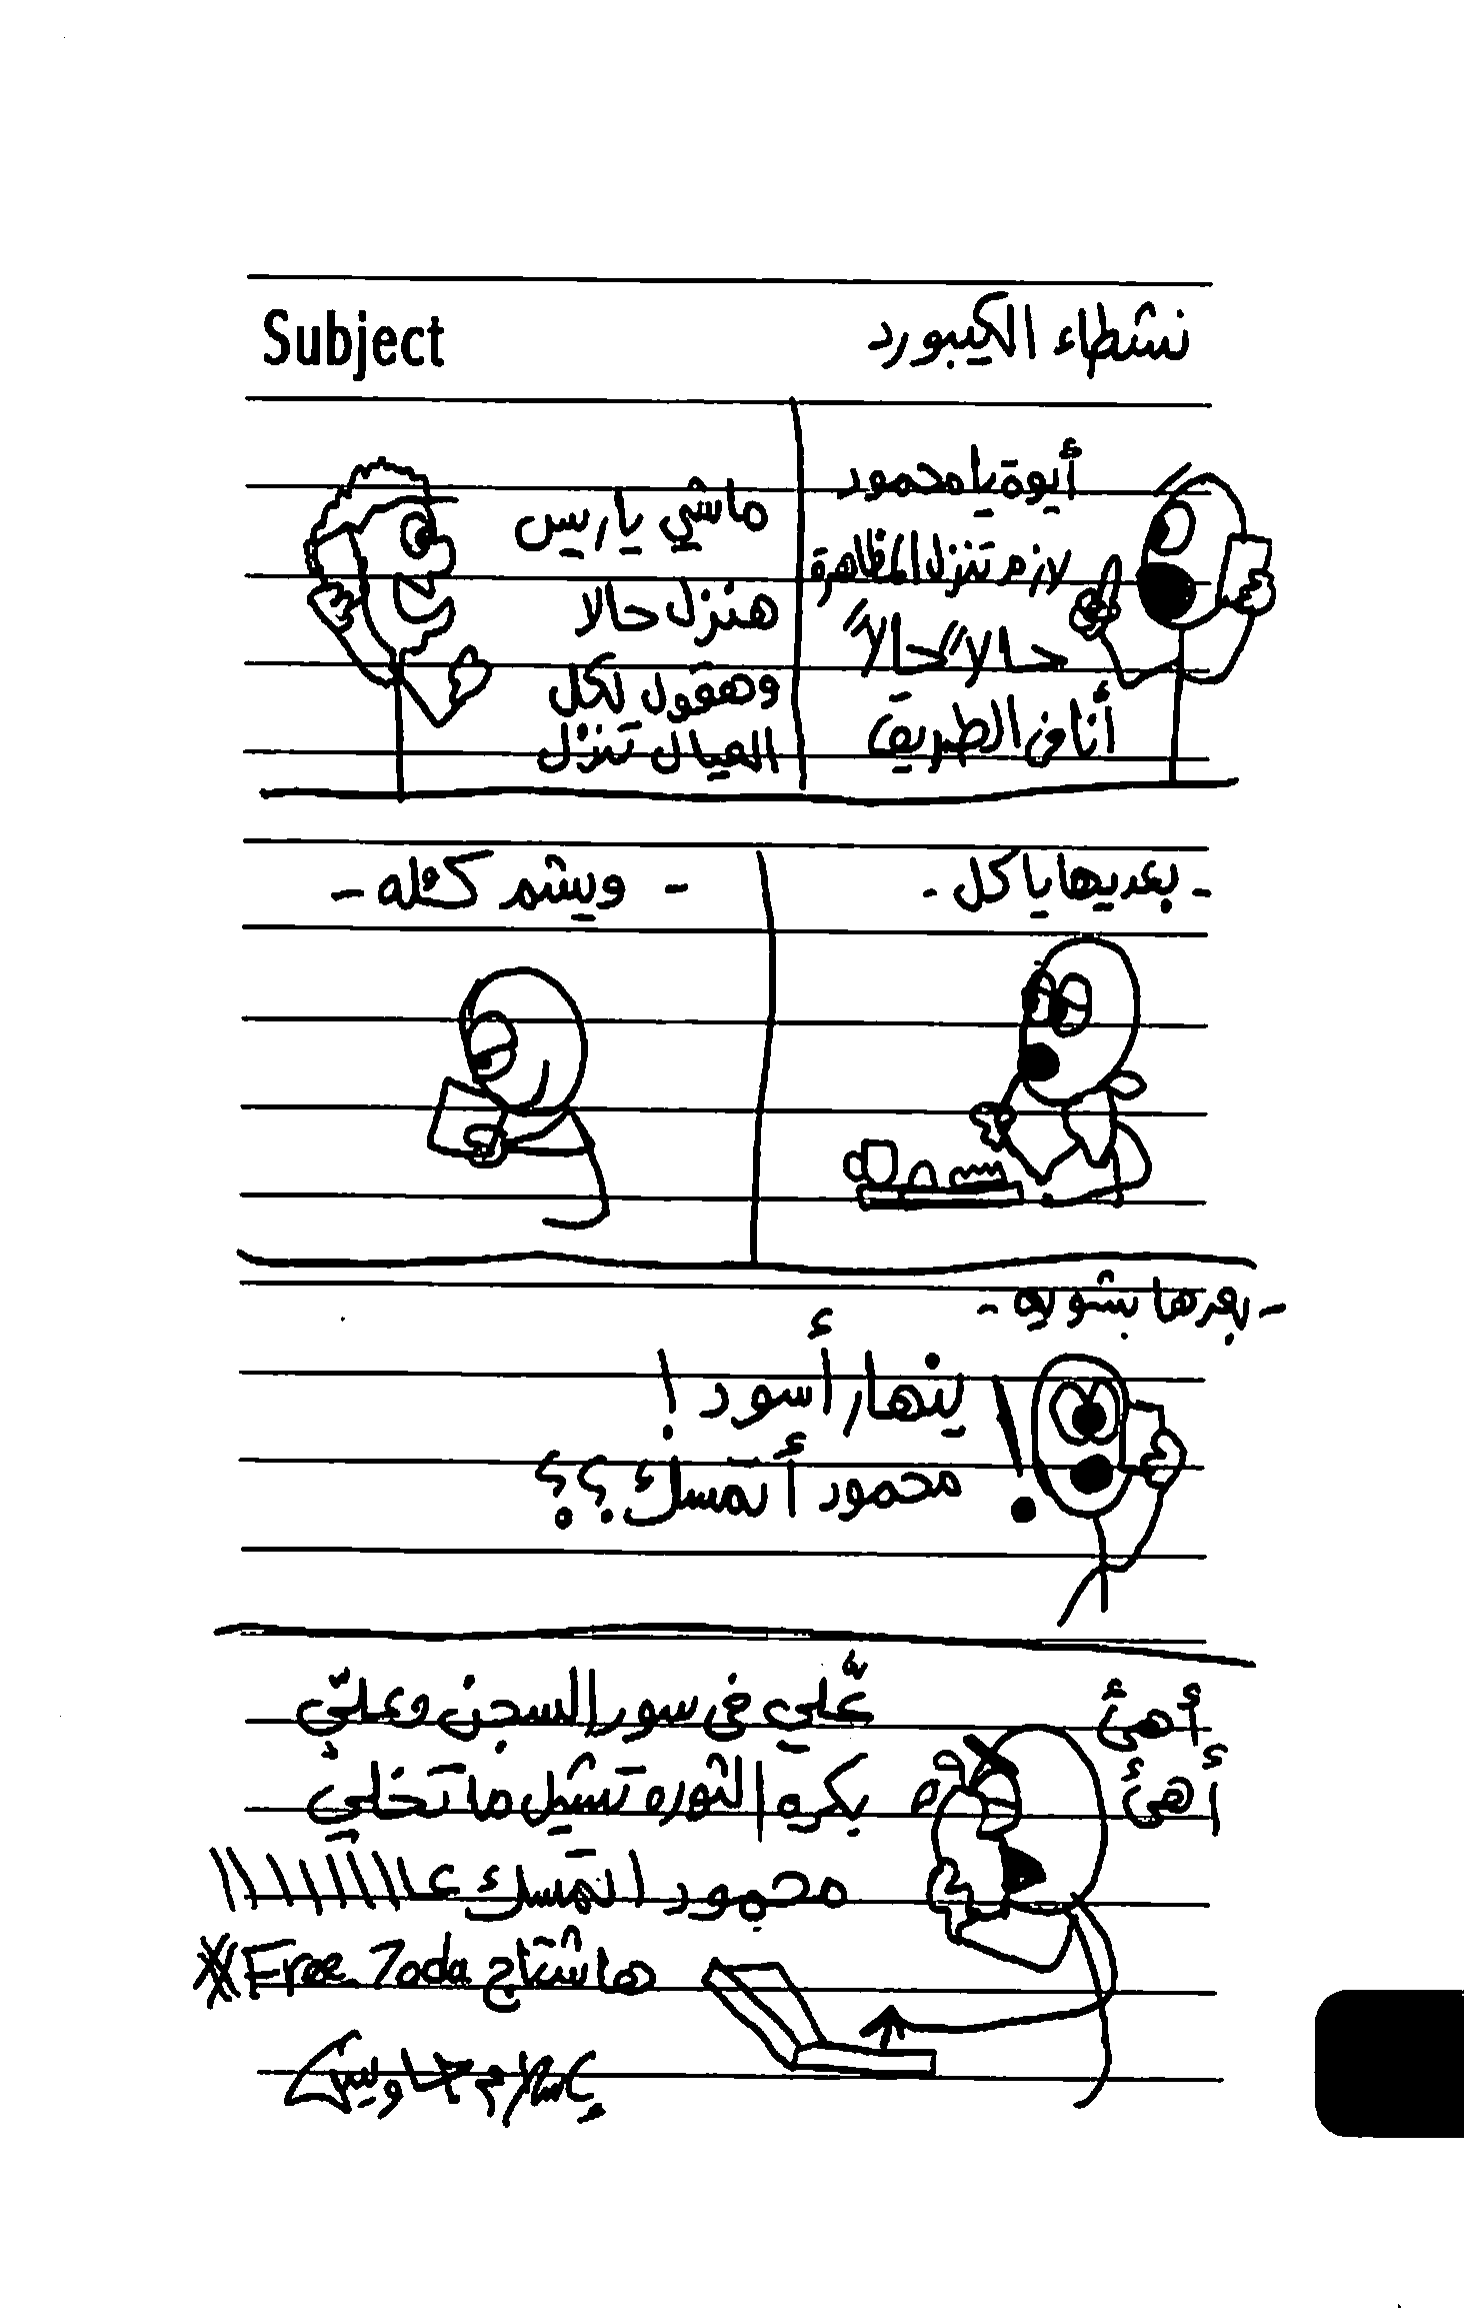 نشطاء الكيبورد
Subject
أيوة يا محمود
لازم تنزل المظاهرة
حالاً حالاً
أنا في الطريق
ماشي ياريس
هنزل حالا
وهقول لكل
العيال تنزل
- بعديها ياكل -
- ويشم كله -
- بعدها بشويه -
ينهار أسود !
محمود أتمسك ؟؟
أهئ
أهئ
علّي في سور السجن وعلّي
بكره الثوره تشيل ما تخلي
محمود اتمسك عااااااااا
هاشتاج Free 7oda
إسلام جاويش